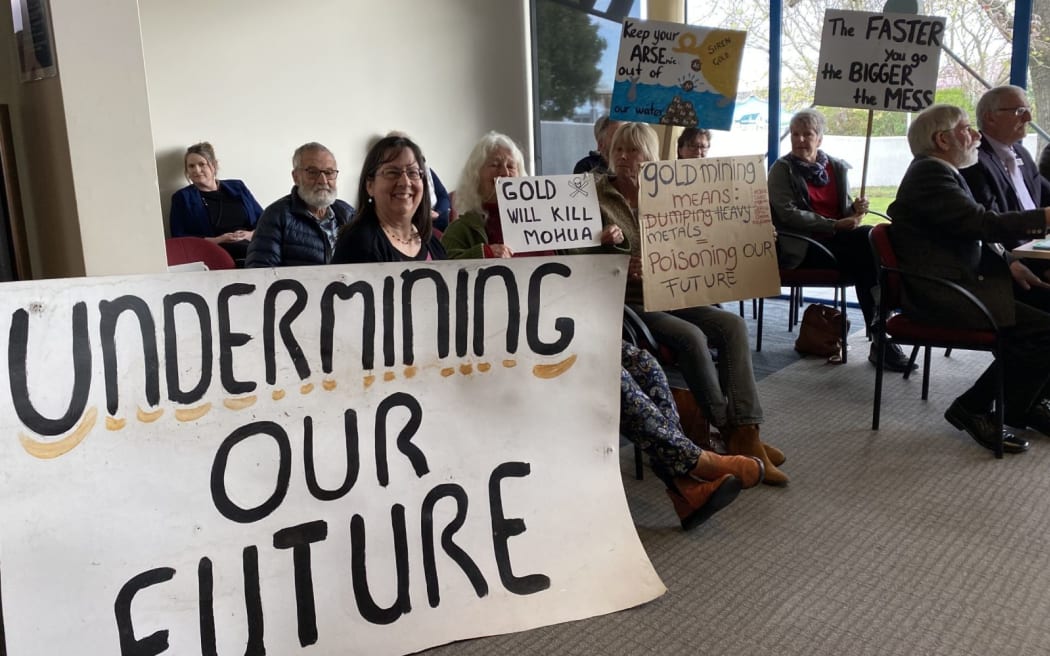 UNDERMINING
OUR
FUTURE
GOLD
WILL KILL
MOHUA
Keep your
ARSEnic
out of
our water
SIREN
GOLD
GOLD MINING
MEANS:
DUMPING HEAVY
METALS =
POISONING OUR
FUTURE
The FASTER
you go
the BIGGER
the MESS